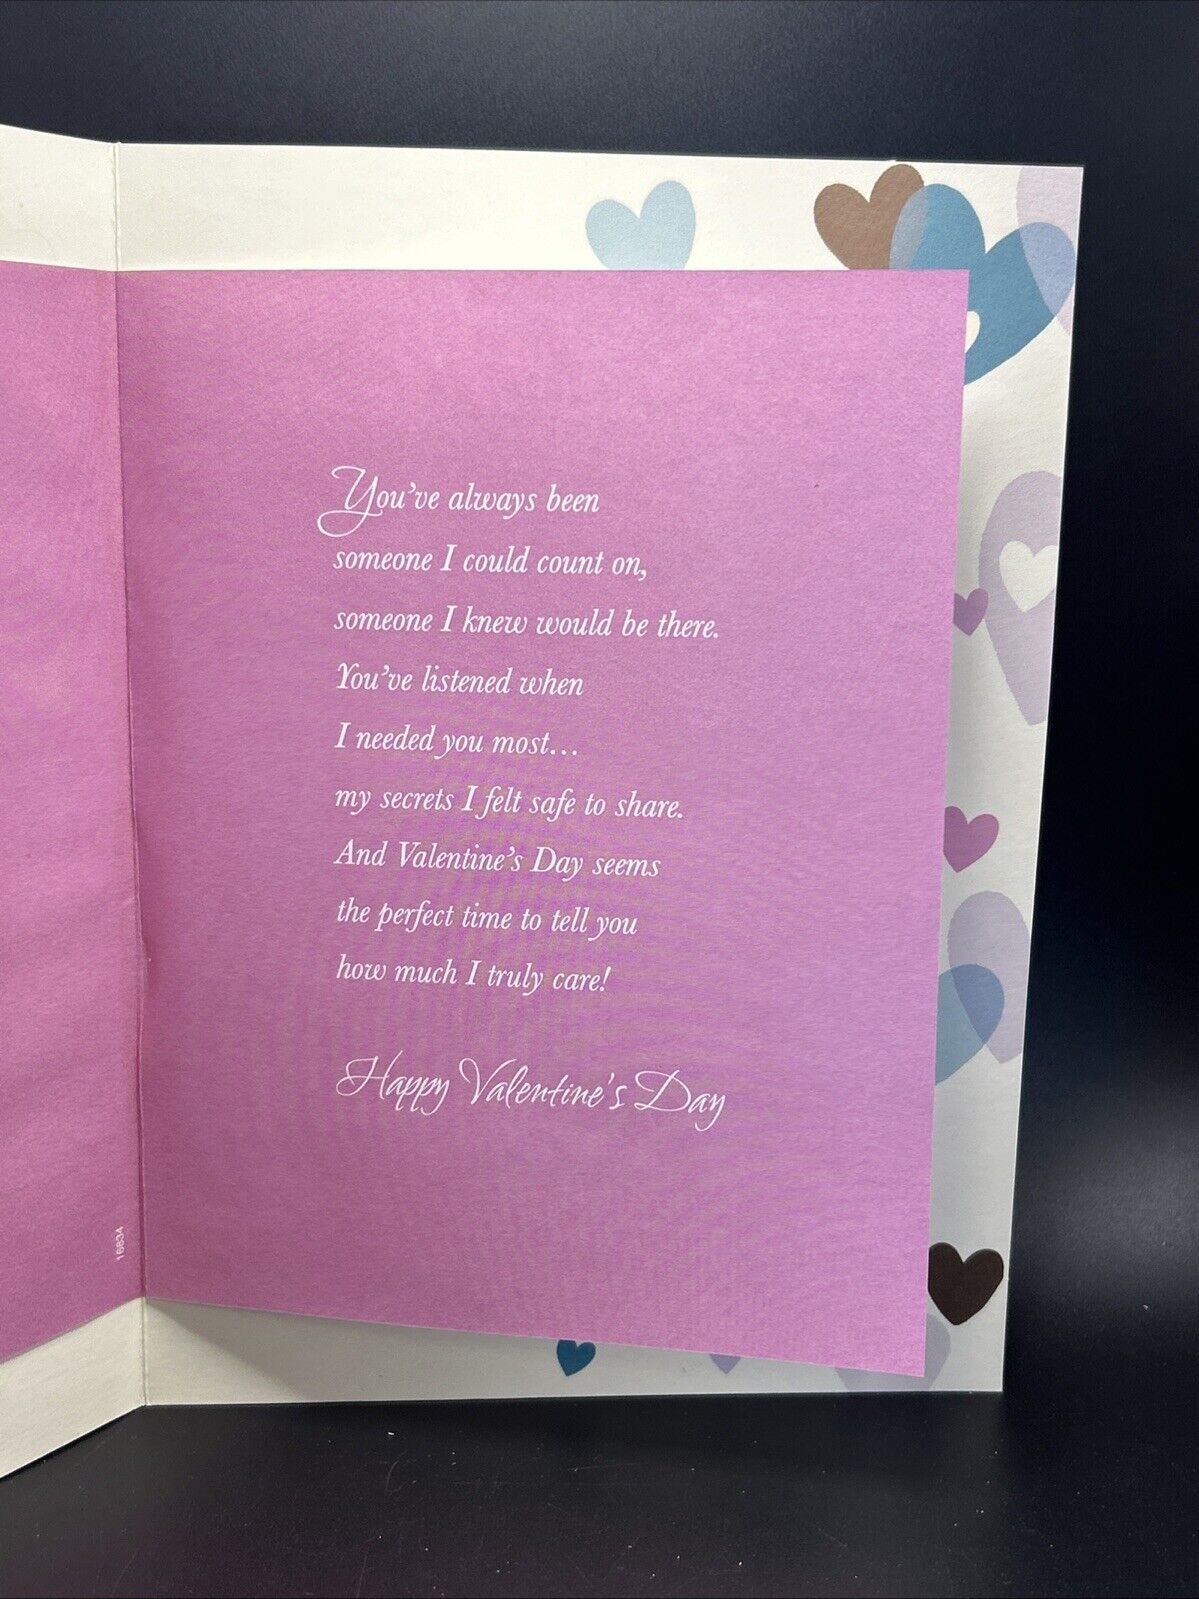 You've always been
someone I could count on,
someone I knew would be there.
You've listened when
I needed you most...
my secrets I felt safe to share.
And Valentine's Day seems
the perfect time to tell you
how much I truly care!
Happy Valentine's Day
16834